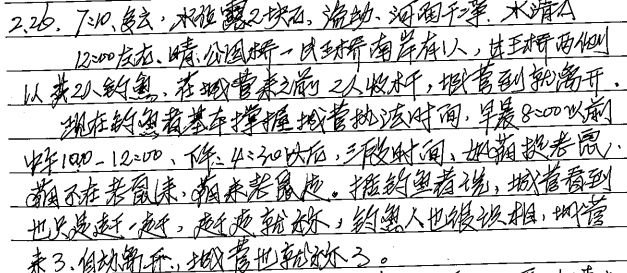 2.26. 7:10. 多云, 水位露2块石, 流动、河面干净. 水清
12:00左右. 晴. 公园桥一比王桥南岸有1人, 比王桥西侧
以类2人钓鱼. 在城管来之前 2人收杆, 城管到就离开.
现在钓鱼者基本掌握城管执法时间, 早晨8:00以前
中午10:00-12:00、下午:4:30以后, 三段时间, 如猫捉老鼠.
猫不在老鼠来, 猫来老鼠走。据钓鱼者说, 城管看到
也只是赶一赶, 赶走就好, 钓鱼人也很识相, 城管
来了, 自动离开, 城管也就 了。